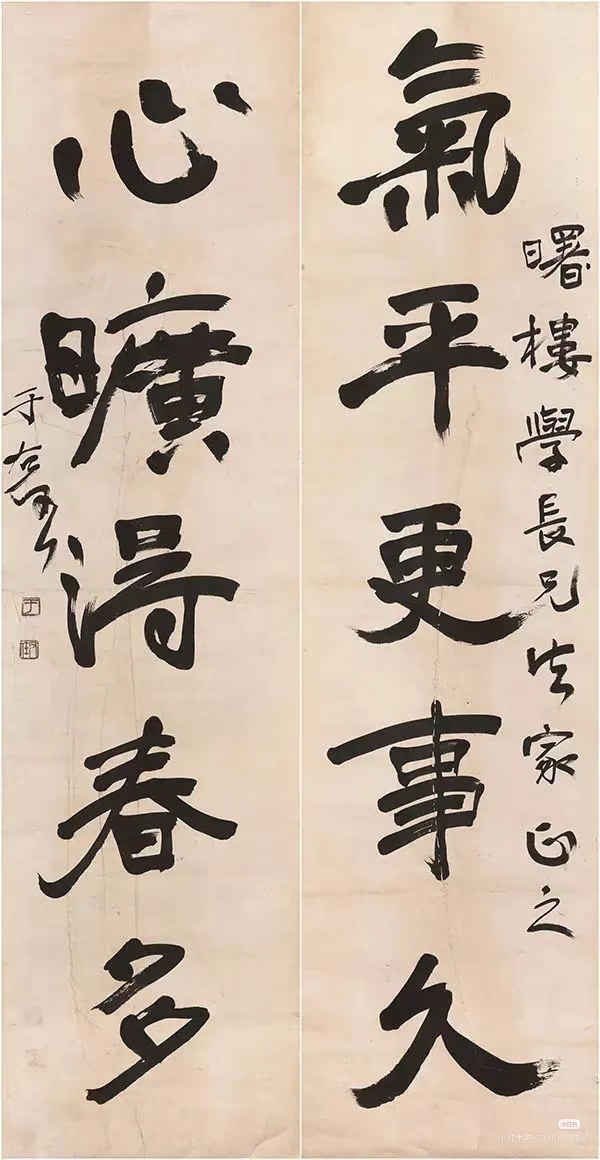 曙樓學長兄法家正之
氣平更事久
心曠得春多
于右任
小红书